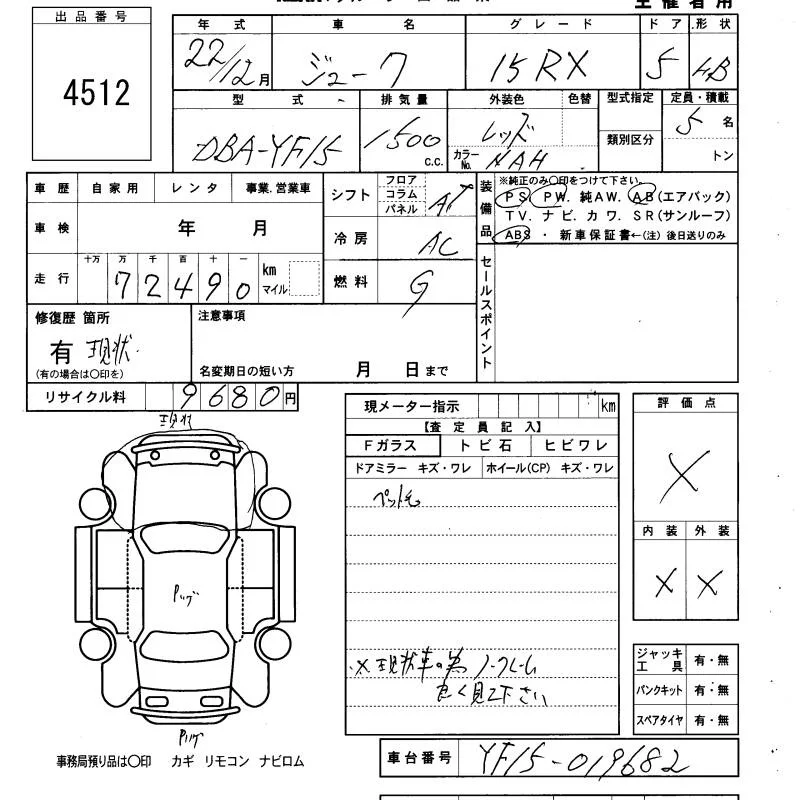 主催者用
出品番号
4512
年式 車名 グレード ドア 形状
22/12月 ジューク 15RX 5 HB
型式 排気量 外装色 色替 型式指定 定員・積載
DBA-YF15 1500 c.c. レッド 類別区分 5名
カラーNo. NAH トン
車歴 自家用 レンタ 事業.営業車
車検 年 月
走行 十万 万 千 百 十 一
72490 km マイル
シフト フロア コラム パネル AT
冷房 AC
燃料 G
装備品 ※純正のみ〇印をつけて下さい。
PS. PW. 純AW. AB(エアバック)
TV. ナビ. カワ. SR(サンルーフ)
ABS ・ 新車保証書←(注) 後日送りのみ
セールスポイント
修復歴 箇所
有 現状
(有の場合は〇印を)
注意事項
名変期日の短い方 月 日まで
リサイクル料 9680円
現状
現メーター指示 km
【査定員記入】
Fガラス トビ石 ヒビワレ
ドアミラー キズ・ワレ ホイール(CP) キズ・ワレ
ペット毛
※現状車の為ノークレーム
良く見て下さい
評価点
X
内装 外装
X X
ジャッキ工具 有・無
パンクキット 有・無
スペアタイヤ 有・無
事務局預り品は〇印 カギ リモコン ナビロム
車台番号 YF15-019682